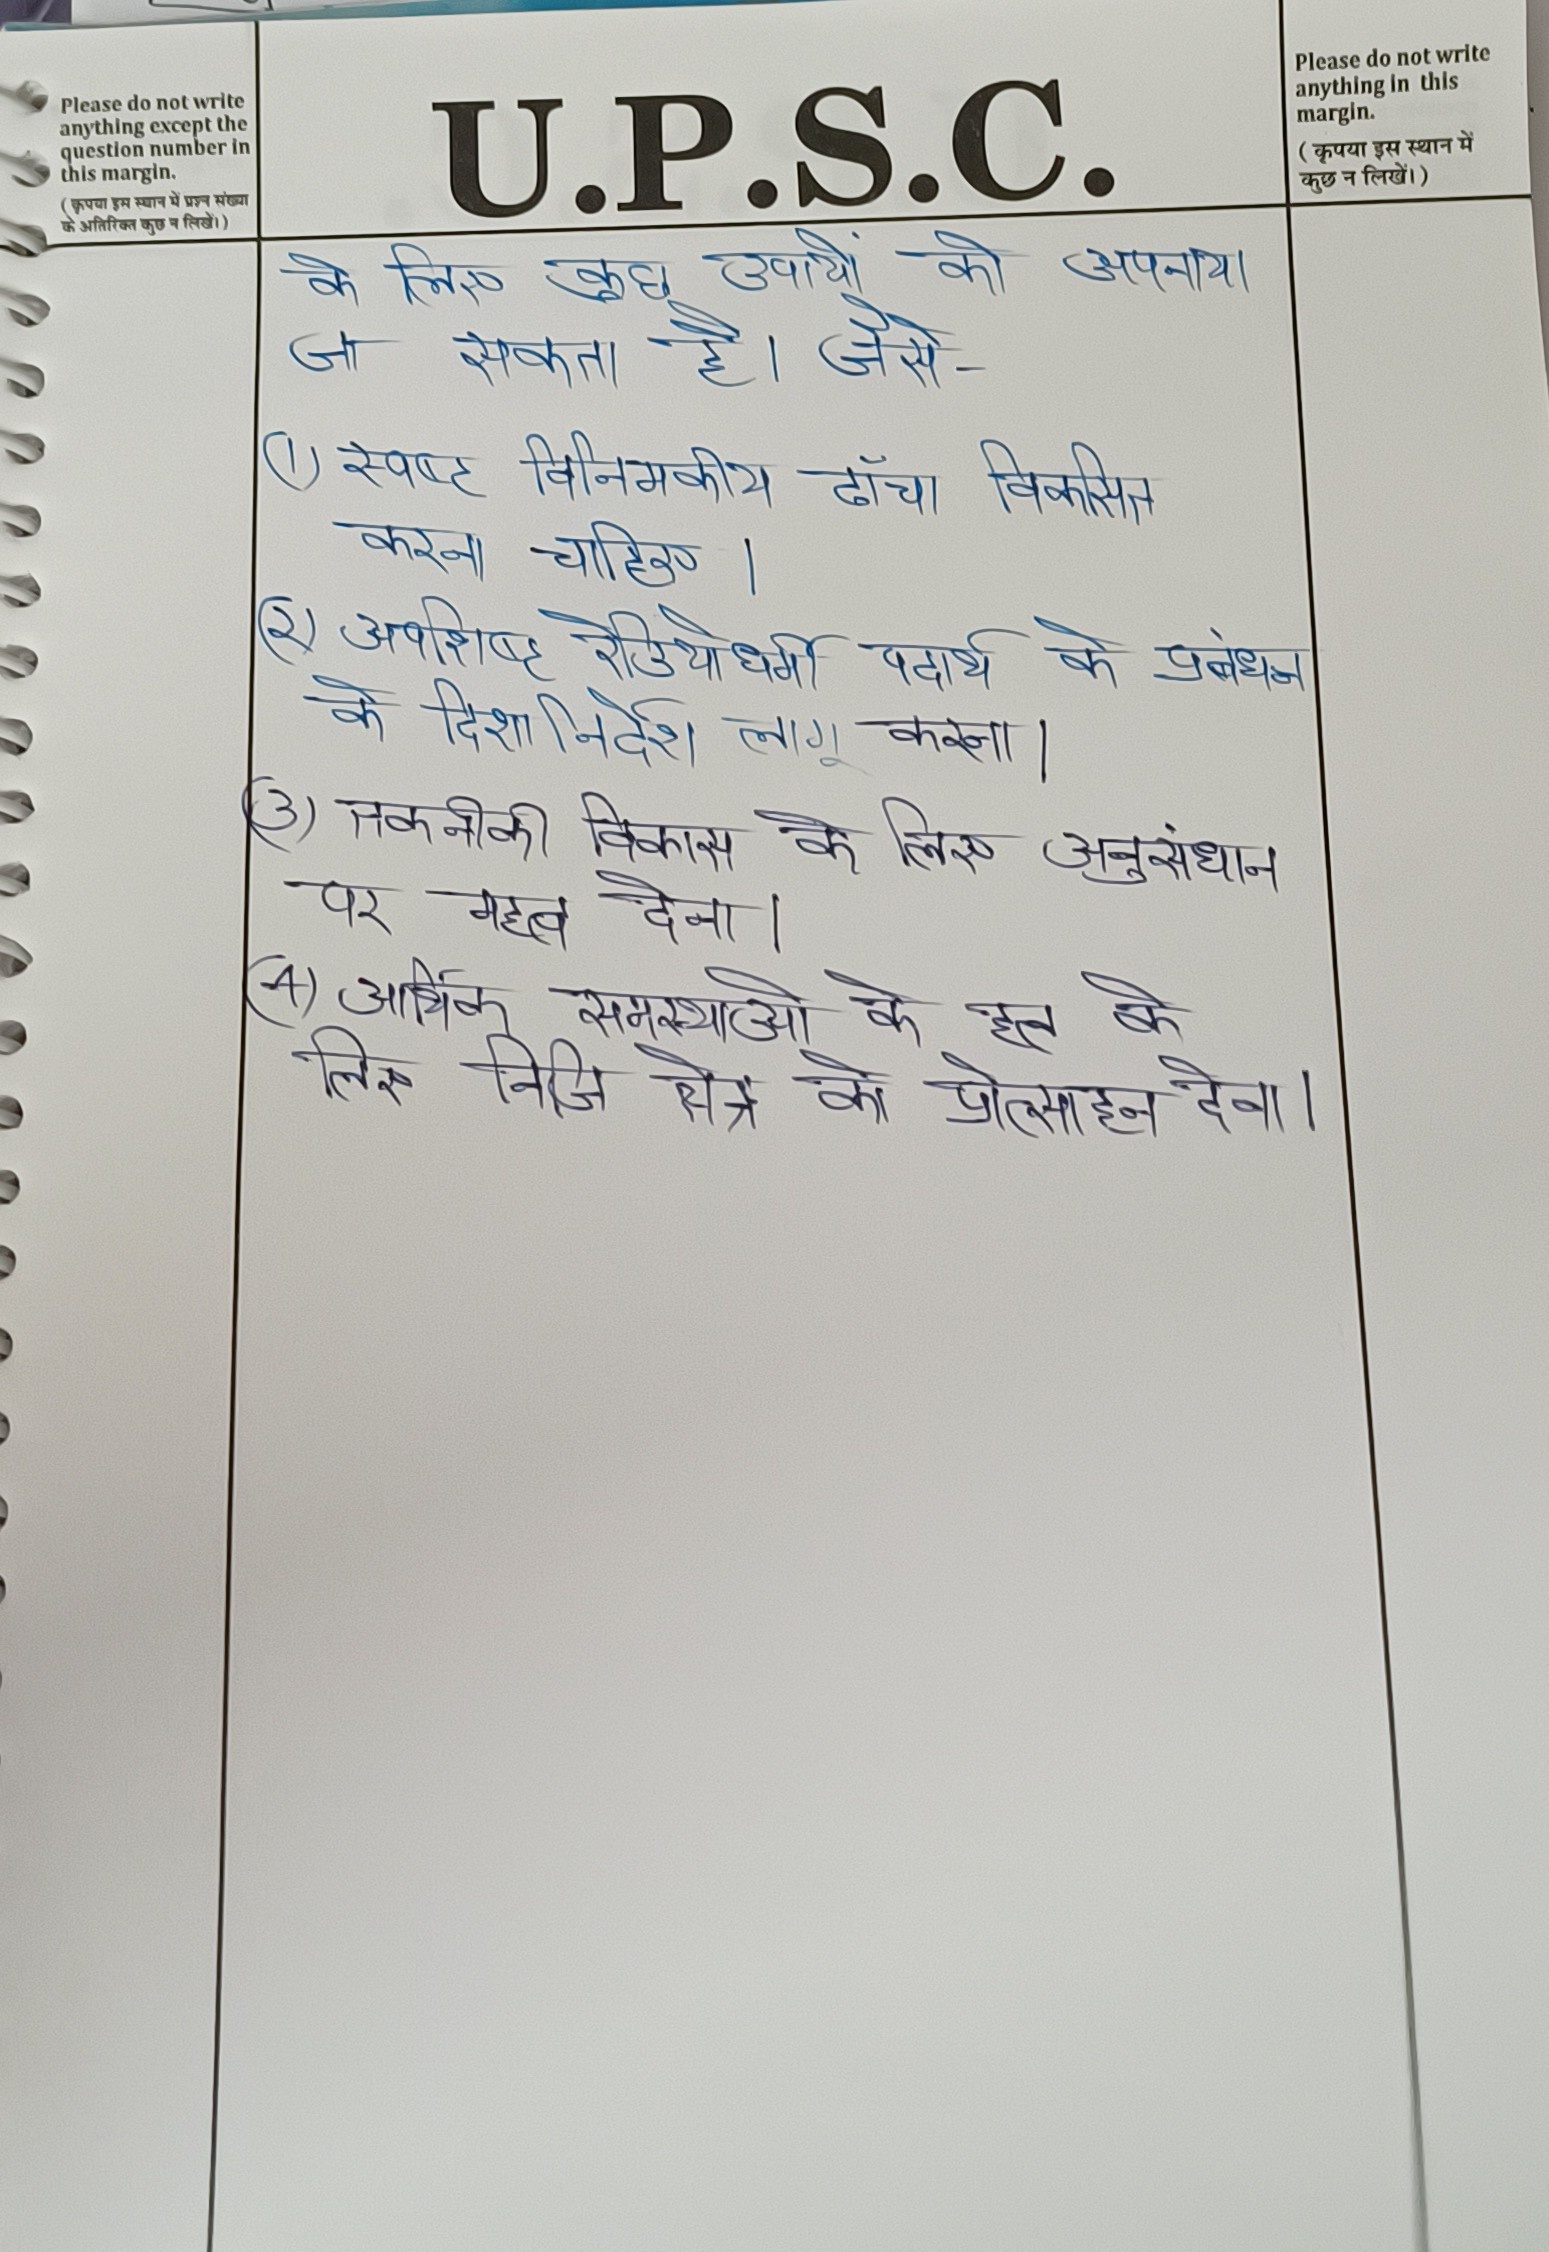 Please do not write
anything except the
question number in
this margin.
(कृपया इस स्थान में प्रश्न संख्या
के अतिरिक्त कुछ न लिखें।)
U.P.S.C.
Please do not write
anything in this
margin.
(कृपया इस स्थान में
कुछ न लिखें।)
के लिए कुछ उपायों को अपनाया
जा सकता है। जैसे-
(1) स्पष्ट विनिमकीय ढाँचा विकसित
करना चाहिए।
(2) अपशिष्ट रेडियोधर्मी पदार्थ के प्रबंधन
के दिशानिर्देश लागू करना।
(3) तकनीकी विकास के लिए अनुसंधान
पर महत्व देना।
(4) आर्थिक समस्याओ के हल के
लिए निजि क्षेत्र को प्रोत्साहन देना।